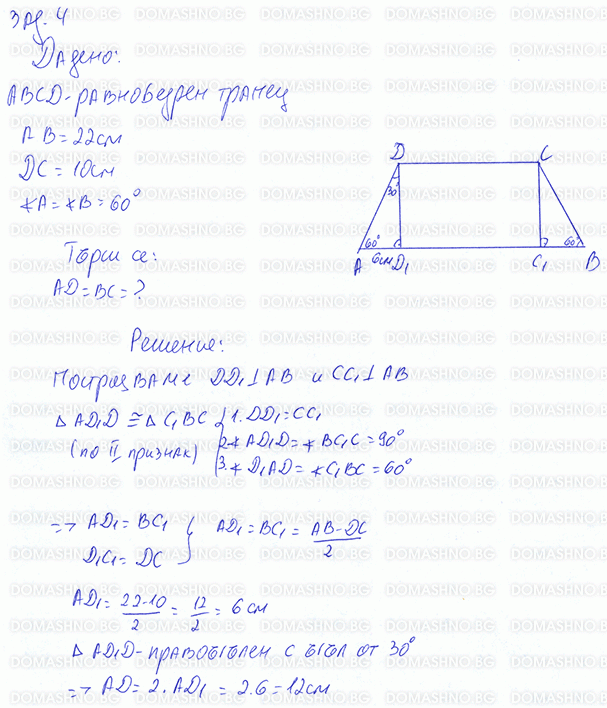 Зад. 4
Дадено:
ABCD - равнобедрен трапец
AB = 22см
DC = 10см
∢A = ∢B = 60°
Търси се:
AD = BC = ?
D C
30°
60° 60°
A 6см D₁ C₁ B
Решение:
Построяваме DD₁ ⊥ AB и CC₁ ⊥ AB
△ AD₁D ≅ △ C₁BC { 1. DD₁ = CC₁
(по II признак) 2. ∢ AD₁D = ∢ BC₁C = 90°
3. ∢ D₁AD = ∢ C₁BC = 60°
=> AD₁ = BC₁ } AD₁ = BC₁ = (AB - DC)/2
D₁C₁ = DC
AD₁ = (22-10)/2 = 12/2 = 6 см
△ AD₁D - правоъгълен с ъгъл от 30°
=> AD = 2. AD₁ = 2.6 = 12см
DOMASHNO.BG